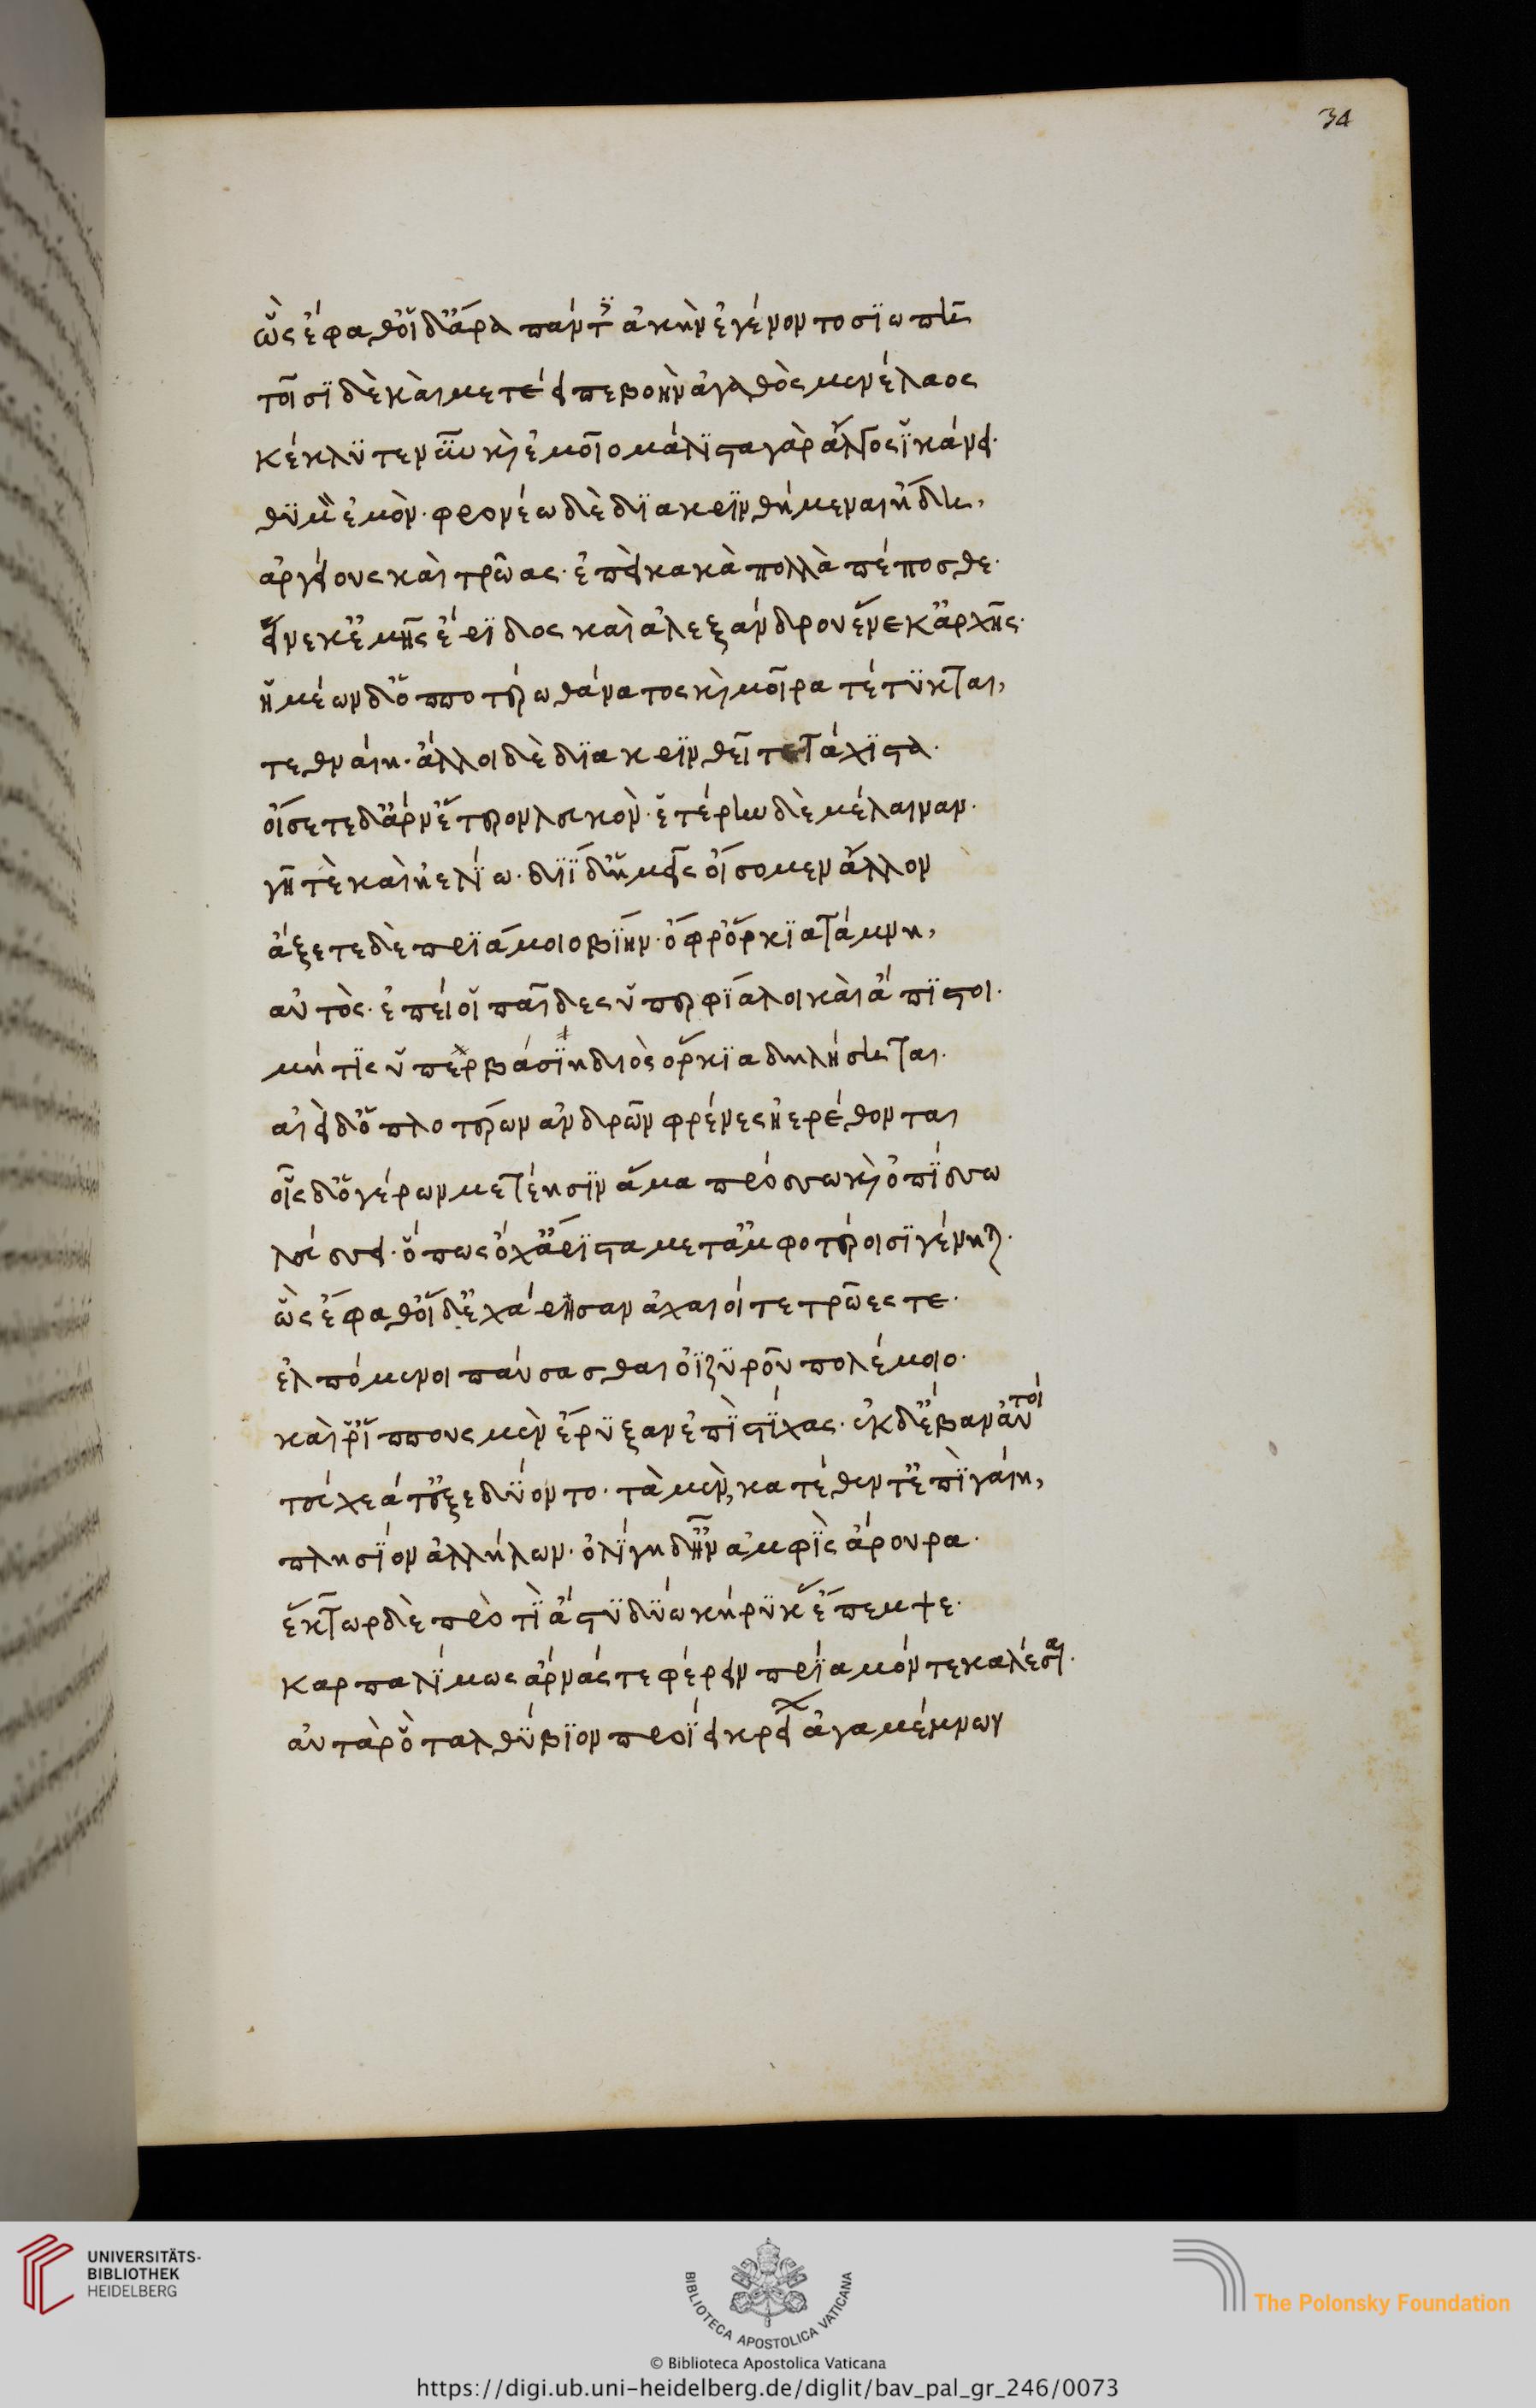 34
ὣς ἔφαθ' οἳ δ' ἄρα πάντες ἀκὴν ἐγένοντο σϊωπῆ
τοῖσϊ δὲ καὶ μετέειπε βοὴν ἀγαθὸς μενέλαος
κέκλϋτε νῦν κὶ ἐμοῖο μάλϊστα γὰρ ἄλγος ἱκάνει·
θϋμὸν ἐμὸν· φρονέω δὲ δϊακρϊνθήμεναι ἤδη,
ἀργείους καὶ τρῶας· ἐπεὶ κακὰ πολλὰ πέποσθε·
εἵνεκ' ἐμῆς ἔρϊδος καὶ ἀλεξάνδρου ἕνεκ' ἀρχῆς·
ἡμέων δ' ὁπποτέρω θάνατος κὶ μοῖρα τέτϋκται,
τεθναίη· ἄλλοι δὲ δϊακρϊνθεῖτε τάχϊστα·
οἴσετε δ' ἄρν' ἕτερον λευκὸν· ἑτέρην δὲ μέλαιναν·
γῆ τὲ καὶ ἠελΐω· δϊῒ δ' ἡμεῖς οἴσομεν ἄλλον
ἄξετε δὲ πρϊάμοιο βϊην· ὄφρ' ὅρκϊα τάμνη,
αὐτὸς· ἐπεί οἱ παῖδες ὑπερφϊαλοι καὶ ἄπϊστοι·
μήτϊς ὑπερβάσϊη διὸς ὅρκϊα δηλήσηται·
αἰεὶ δ' ὁπλοτέρων ἀνδρῶν φρένες ἠερέθονται
οἷς δ' ὁ γέρων μετέησϊν ἅμα πρόσσω κὶ ὀπΐσσω
λεύσσει· ὅπως ὄχ' ἄρϊστα μετ' ἀμφοτέροισϊ γένηται·
ὣς ἔφαθ' οἳ δ' ἐχάρησαν ἀχαιοί τε τρῶες τε·
ἐλπόμενοι παύσασθαι ὀϊζϋροῦ πολέμοιο·
καὶ ῥ' ἵππους μὲν ἔρϋξαν ἐπῒ στΐχας· ἐκ δ' ἔβαν αὐτοί
τεύχεά τ' ἐξεδϋοντο· τὰ μὲν κατέθεντ' ἐπῒ γαίη,
πλησΐον ἀλλήλων· ὀλΐγη δ' ἦν ἀμφῒς ἄρουρα·
ἕκτωρ δὲ προτῒ ἄστϋ δϋω κήρϋκ' ἔπεμψε·
καρπαλΐμως ἄρνάς τε φέρειν πρϊαμόν τε καλέσσαι·
αὐτὰρ ὃ ταλθϋβϊον προΐει κρείων ἀγαμέμνων
UNIVERSITÄTS-
BIBLIOTHEK
HEIDELBERG
BIBLIOTECA APOSTOLICA VATICANA
The Polonsky Foundation
© Biblioteca Apostolica Vaticana
https://digi.ub.uni-heidelberg.de/diglit/bav_pal_gr_246/0073